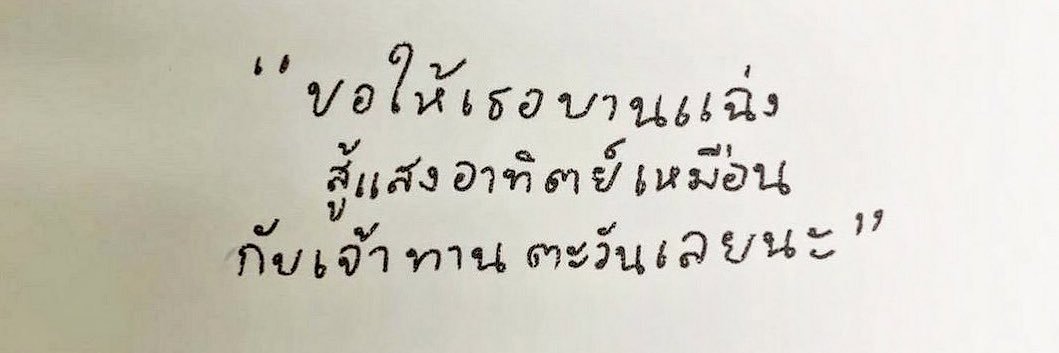 “ขอให้เธอบานแฉ่ง
สู้แสงอาทิตย์เหมือน
กับเจ้าทานตะวันเลยนะ”